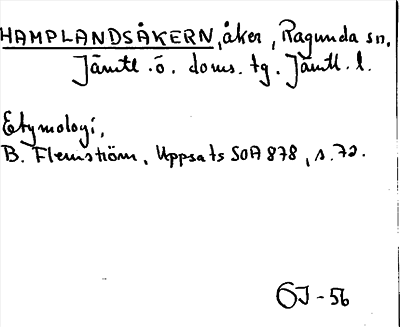 HAMPLANDSÅKERN, åker, Ragunda sn.
Jämtl. ö. doms. tg. Jämtl. l.
Etymologi,
B. Flemström, Uppsats SOA 878, s. 72.
ÖJ-56